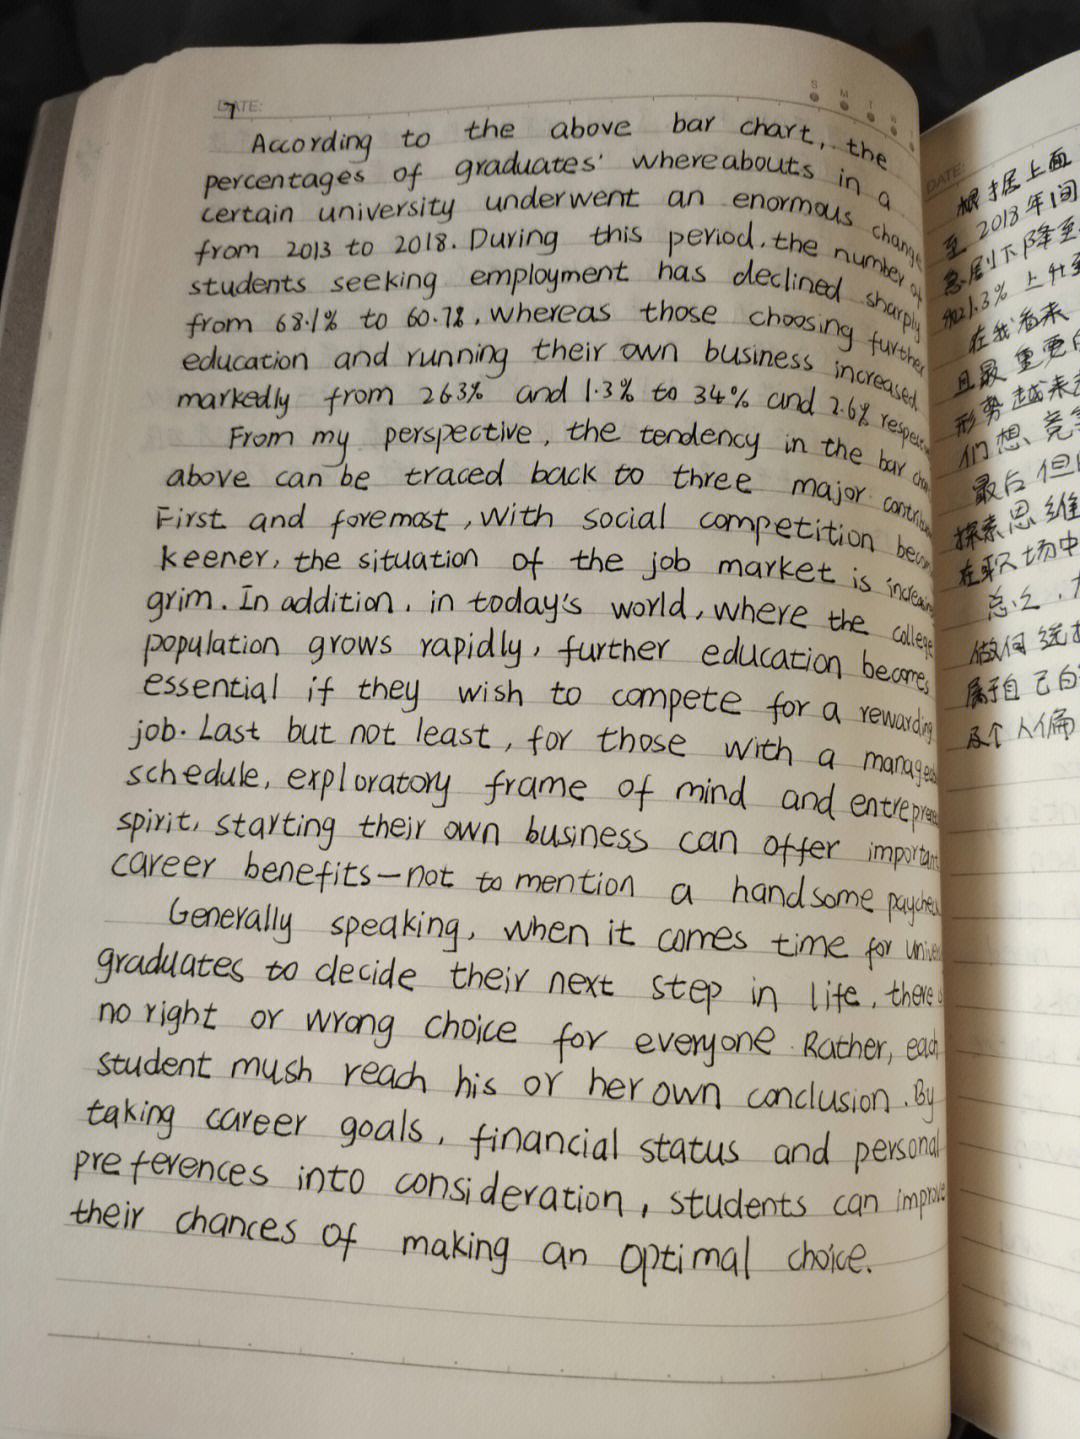 DATE:
7
S M T W
According to the above bar chart, the
percentages of graduates' whereabouts in a
certain university underwent an enormous change
from 2013 to 2018. During this period, the number of
students seeking employment has declined sharply
from 68.1% to 60.7%, whereas those choosing further
education and running their own business increased
markedly from 26.3% and 1.3% to 34% and 2.6%
From my perspective, the tendency in the bar
above can be traced back to three major
First and foremost, with social competition
keener, the situation of the job market is
grim. In addition, in today's world, where the college
population grows rapidly, further education becomes
essential if they wish to compete for a rewarding
job. Last but not least, for those with a
schedule, exploratory frame of mind and
spirit, starting their own business can offer important
career benefits—not to mention a handsome
Generally speaking, when it comes time for
graduates to decide their next step in life, there
no right or wrong choice for everyone. Rather, each
student mush reach his or her own conclusion. By
taking career goals, financial status and personal
preferences into consideration, students can improve
their chances of making an optimal choice.
DATE:
根据上面
至2018年间
急剧下降至
和1.3%上升至
在我看来
且最重要的
形势越来
们想竞争
最后但
探索思维
在职场中
总之
做何选
属于自己的
及个人偏